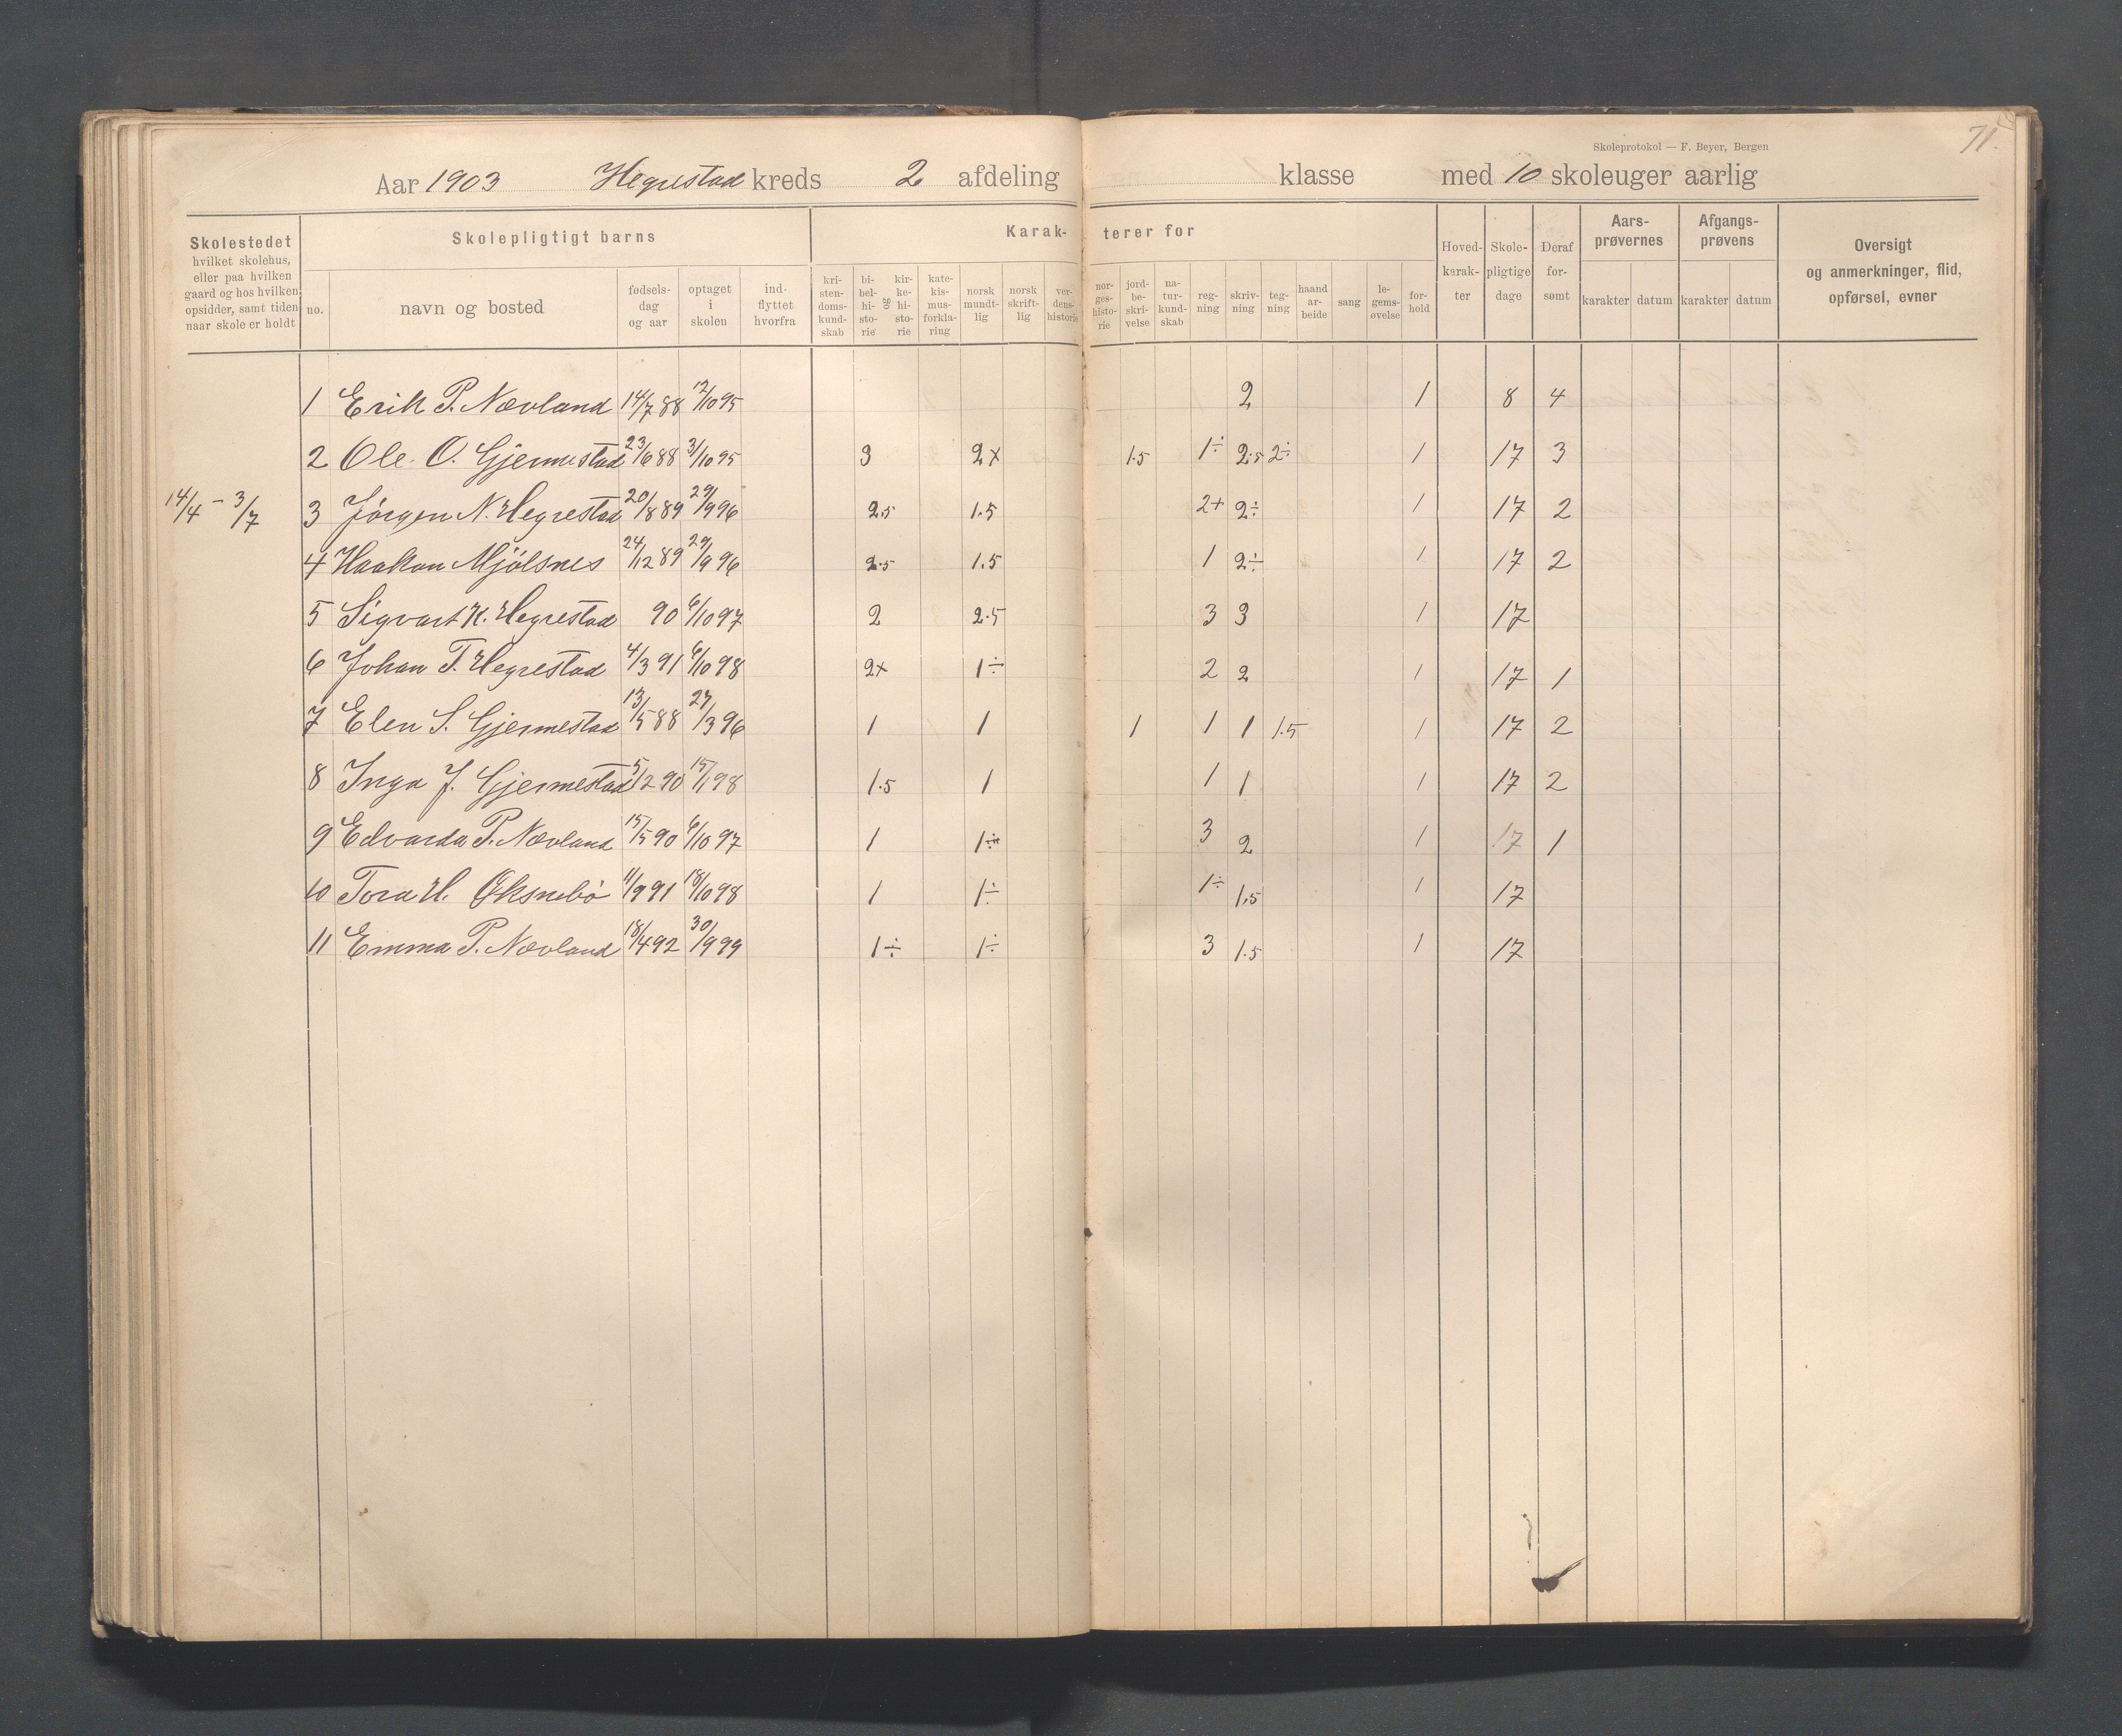 71.
Skoleprotokol — F. Beyer, Bergen
Aar 1903 Hegrestad kreds 2 afdeling klasse med 10 skoleuger aarlig
Skolestedet hvilket skolehus, eller paa hvilken gaard og hos hvilken opsidder, samt tiden naar skole er holdt
Skolepligtigt barns
no. navn og bosted fødsels-dag og aar optaget i skolen ind-flyttet hvorfra
Karak-terer for
kri-sten-doms-kund-skab bi-bel-hi-sto-rie og kir-ke-hi-sto-rie kate-kis-mus-forkla-ring norsk mundt-lig norsk skrift-lig ver-dens-historie nor-ges-histo-rie jord-be-skri-velse na-tur-kund-skab reg-ning skriv-ning teg-ning haand ar-beide sang le-gems-øvelse for-hold
Hoved-karak-ter Skole-pligtige dage Deraf for-sømt
Aars-prøvernes karakter datum
Afgangs-prøvens karakter datum
Oversigt og anmerkninger, flid, opførsel, evner
1 Erik P. Nævland 14/7 88 12/10 95 2 1 8 4
2 Ole. O. Gjermestad 23/6 88 3/10 95 3 2+ 1.5 1÷ 2.5 2÷ 1 17 3
14/4 - 3/7 3 Jörgen N. Hegrestad 20/8 89 29/9 96 2.5 1.5 2+ 2÷ 1 17 2
4 Haakon Mjölsnes 24/12 89 29/9 96 2.5 1.5 1 2÷ 1 17 2
5 Sigvart K. Hegrestad 90 6/10 97 2 2.5 3 3 1 17
6 Johan T. Hegrestad 4/3 91 6/10 98 2+ 1÷ 2 2 1 17 1
7 Elen S. Gjermestad 13/5 88 27/3 96 1 1 1 1 1 1.5 1 17 2
8 Inga J. Gjermestad 5/2 90 15/1 98 1.5 1 1 1 1 17 2
9 Edvarda P. Nævland 15/5 90 6/10 97 1 1÷ 3 2 1 17 1
10 Tora H. Øksnebö 11/9 91 18/10 98 1 1÷ 1÷ 1.5 1 17
11 Emma P. Nævland 18/4 92 30/9 99 1÷ 1÷ 3 1.5 1 17